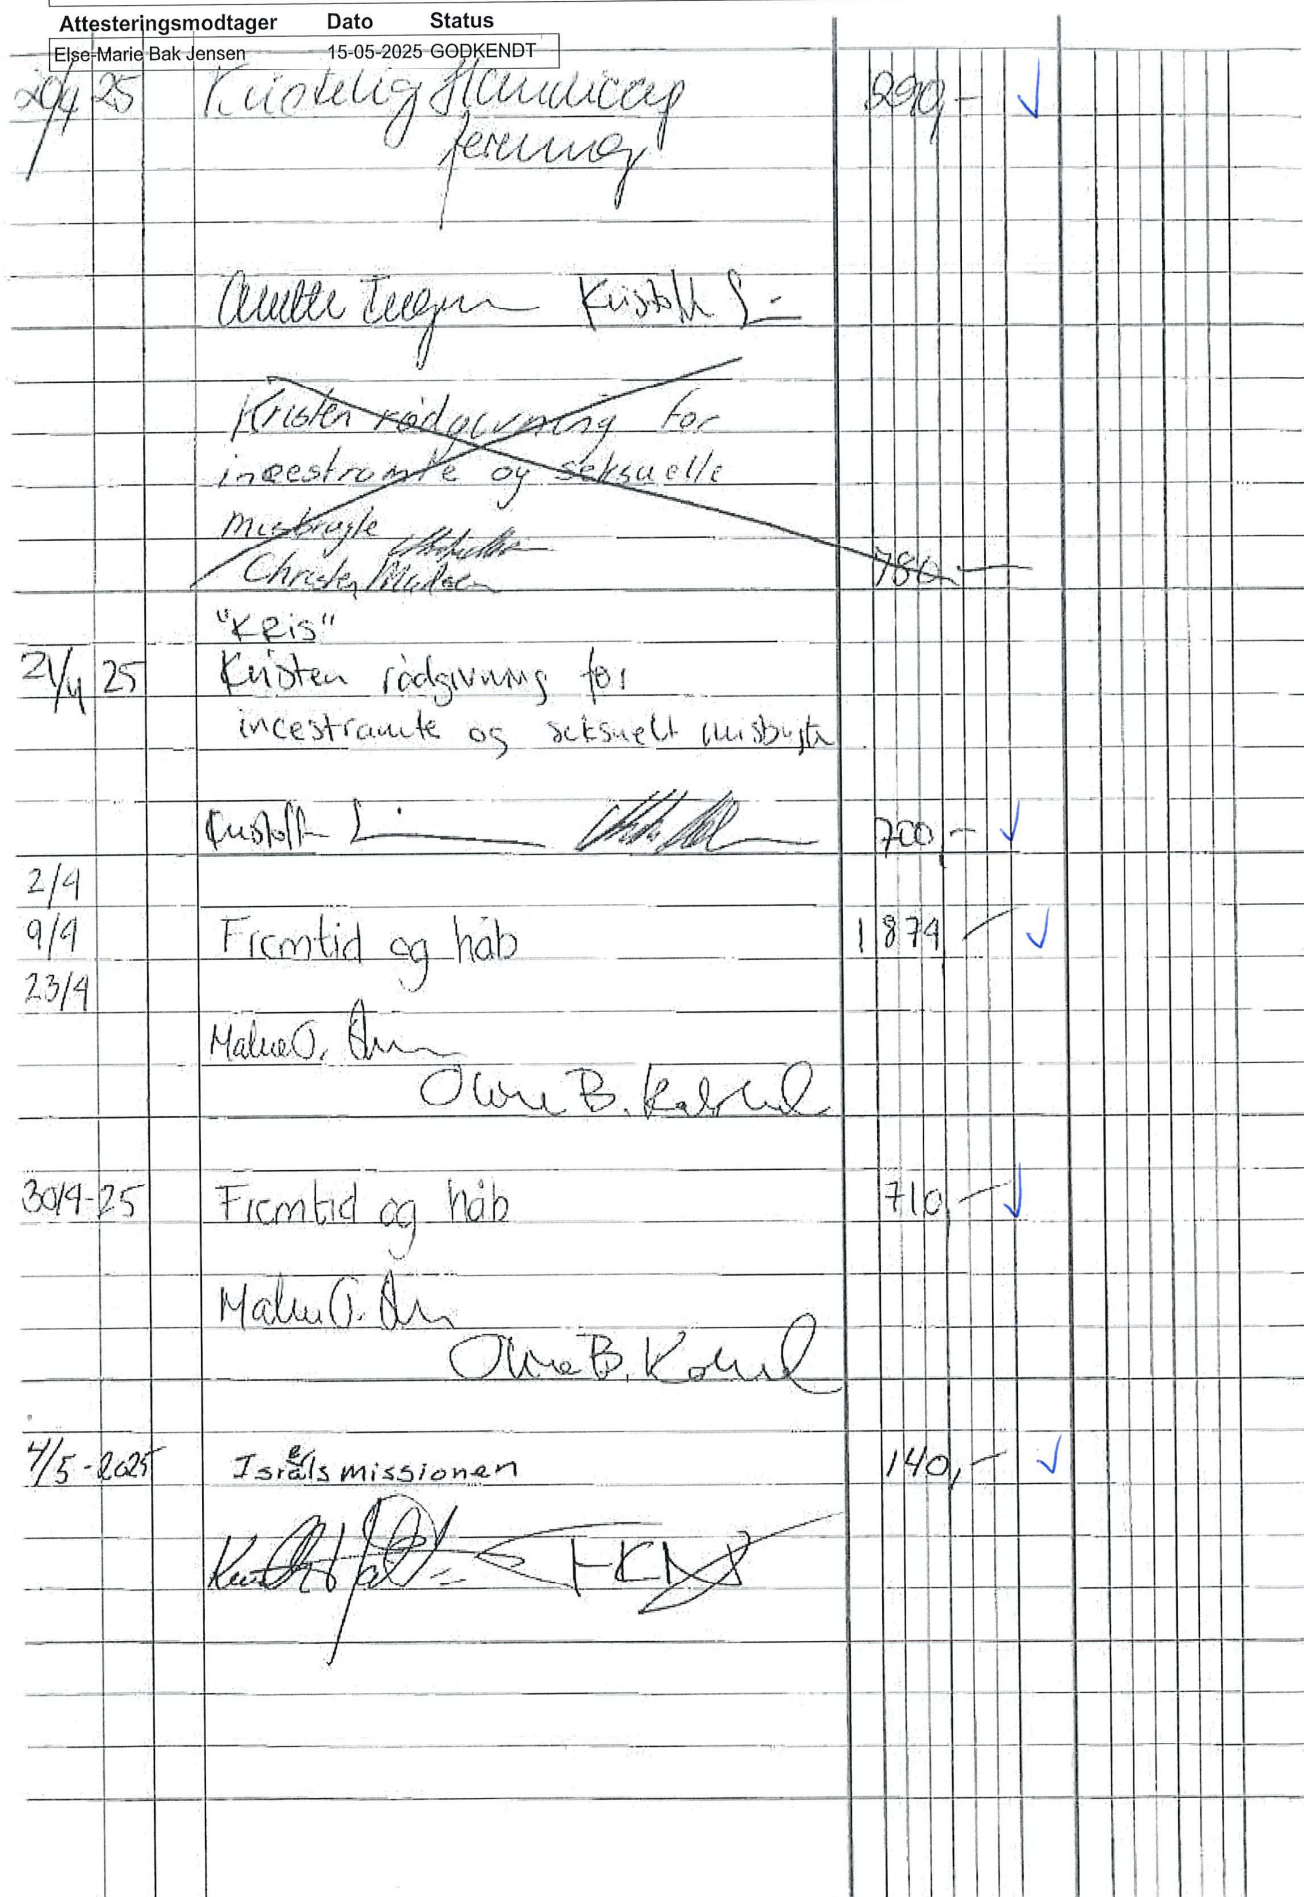 Attesteringsmodtager Dato Status
Else-Marie Bak Jensen 15-05-2025 GODKENDT
25 Kristelig Handicap 290,-
forening
Kristoffer
Kristen rådgivning for
incestramte og seksuelle
misbrugte
Christen Madsen 780,-
"KRIS"
21/4 25 Kristen rådgivning for
incestramte og seksuelt misbrugte
Kristoffer 700,-
2/4
9/4 Fremtid og håb 1874,-
23/4
Malue O.
B.
30/4-25 Fremtid og håb 710,-
B.
4/5-2025 Israelsmissionen 140,-